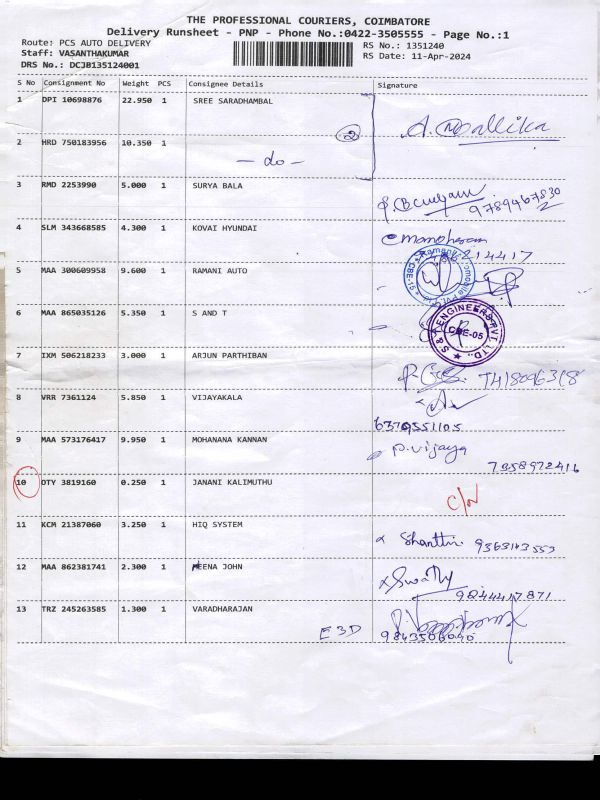 THE PROFESSIONAL COURIERS, COIMBATORE
Delivery Runsheet - PNP - Phone No.:0422-3505555 - Page No.:1
Route: PCS AUTO DELIVERY
RS No.: 1351240
Staff: VASANTHAKUMAR
RS Date: 11-Apr-2024
DRS No.: DCJB135124001
S No Consignment No Weight PCS Consignee Details Signature
1 DPI 10698876 22.950 1 SREE SARADHAMBAL
2 A. Mallika
2 HRD 750183956 10.350 1
— do —
3 RMD 2253990 5.000 1 SURYA BALA
9789467530
4 SLM 343668585 4.300 1 KOVAI HYUNDAI
manoharan
5 MAA 300609958 9.600 1 RAMANI AUTO
6 MAA 865035126 5.350 1 S AND T
S & T ENGINEERS PVT. LTD.,
CBE-05
7 IXM 506218233 3.000 1 ARJUN PARTHIBAN
8 VRR 7361124 5.850 1 VIJAYAKALA
6370551105
9 MAA 573176417 9.950 1 MOHANANA KANNAN
P. Vijaya
7358972416
10 OTY 3819160 0.250 1 JANANI KALIMUTHU
C/N
11 KCM 21387060 3.250 1 HIQ SYSTEM
Shanthi 9363143553
12 MAA 862381741 2.300 1 MEENA JOHN
Swathy
9244417871
13 TRZ 245263585 1.300 1 VARADHARAJAN
E3D